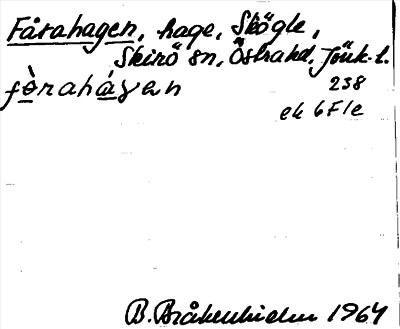 Fårahagen, hage, Skögle,
Skirö sn, Östra hd, Jönk. l.
fòrahágen
238
ek 6F1e
B. Bråkenhielm 1964